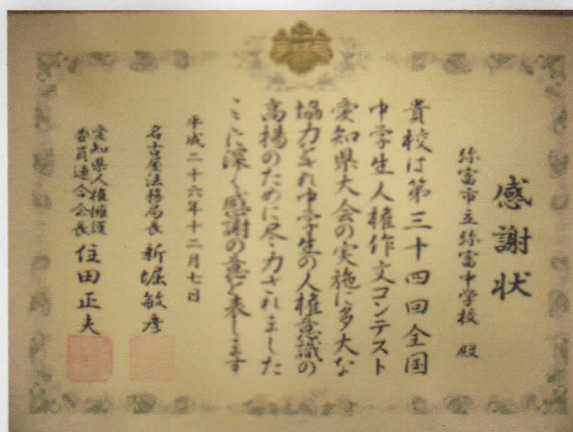 感謝状
弥富市立弥富中学校 殿
貴校は第三十四回全国
中学生人権作文コンテスト
愛知県大会の実施に多大な
協力をされ中学生の人権意識の
高揚のために尽力されました
ここに深く感謝の意を表します
平成二十六年十二月七日
名古屋法務局長 新堀敏彦
愛知県人権擁護
委員連合会長 住田正夫